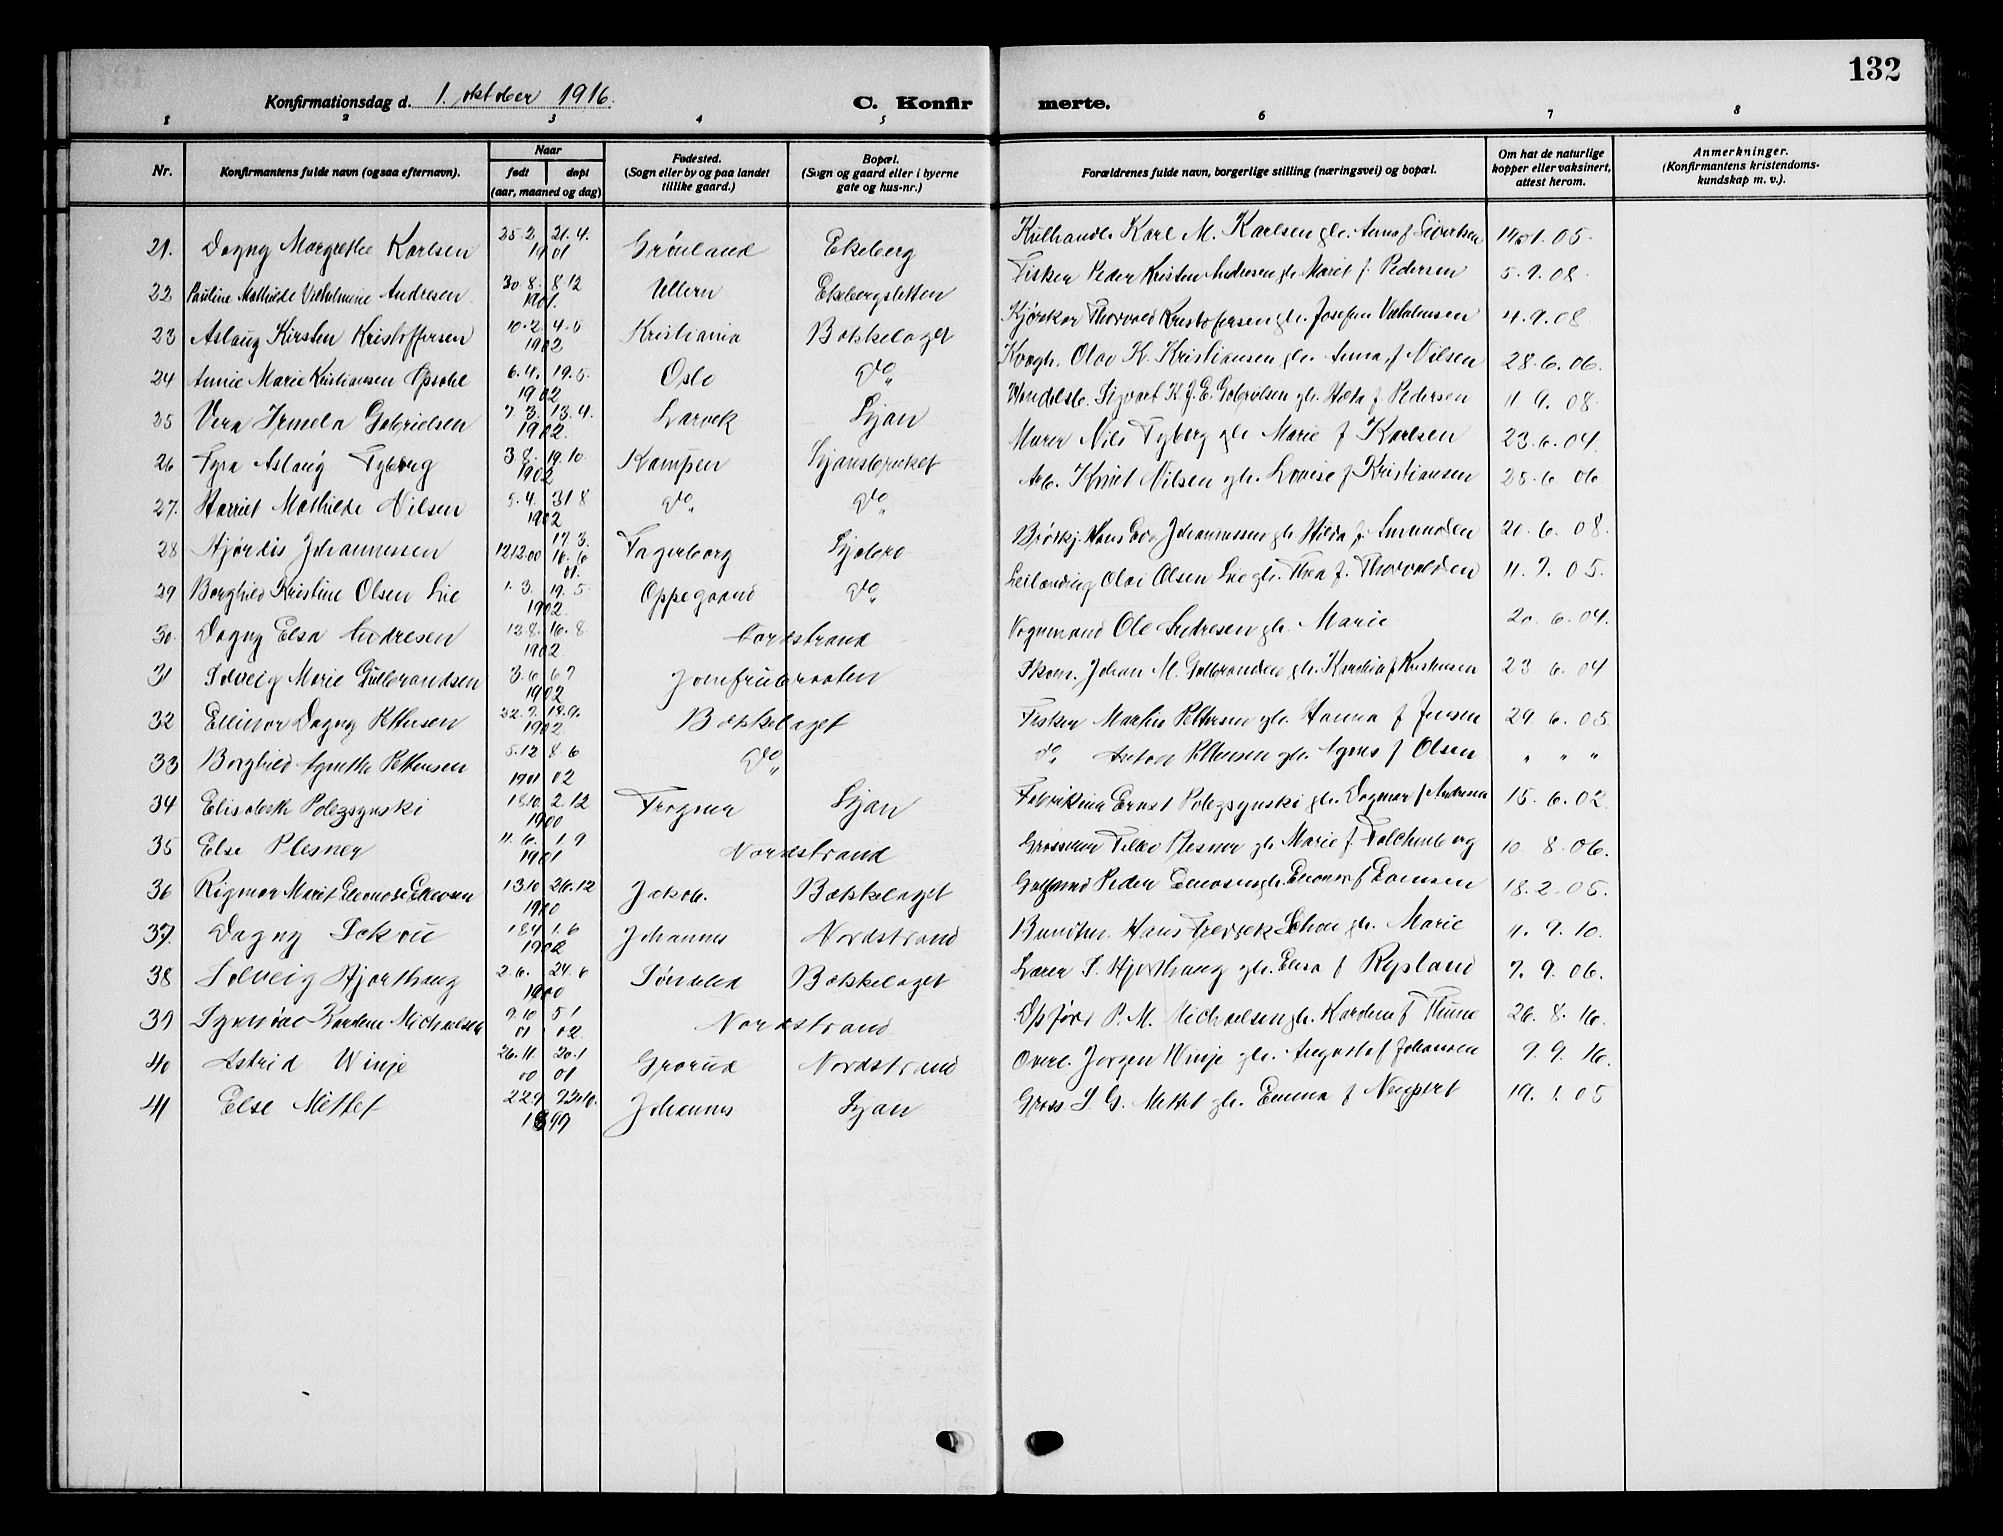 132
Konfirmationsdag d. 1. oktober 1916.
C. Konfirmerte.
1 2 3 4 5 6 7 8
Nr. Konfirmantens fulde navn (ogsaa efternavn). Naar født døpt (aar, maaned og dag) Fødested. (Sogn eller by og paa landet tillike gaard.) Bopæl. (Sogn og gaard eller i byerne gate og hus-nr.) Forældrenes fulde navn, borgerlige stilling (næringsvei) og bopæl. Om hat de naturlige kopper eller vaksinert, attest herom. Anmerkninger. (Konfirmantens kristendoms-kundskap m. v.).
21. Dagny Margrethe Karlsen 25.2. 21.4. 1901 Grønland Ekeberg Kulhandl. Karl M. Karlsen gh. Anna f Sivertsen 1.05.
22 Pauline Mathilde Vilhelmine Andresen 30.8. 8.12 1901. Ullern Ekebergsletten Fisker Peder Kristen Andresen gh. Maret f. Pedersen 5.9.08.
23 Aslaug Kirsten Kristoffersen 10.2. 4.5 1902 Kristiania Bækkelaget Kjørekar Thorvald Kristofersen gh. Josefine 4.9.08.
24 Annie Marie Kristiansen Opsahl 6.4. 19.5. 1902 Oslo Do. Olav K. Kristiansen gh. Anna f Nilsen 28.6.06.
25 Vera Irmela Gabrielsen 7.3. 13.4. 1902. Larvik Ljan Sigvart K. J. E. Gabrielsen gh. f Pedersen 11.9.08.
26 Fyra Aslaug Tyberg 3.8. 19.10. 1902 Kampen Ljansbruket Murer Nils Tyberg gh. Marie f Karlsen 23.6.04.
27. Harriet Mathilde Nilsen 5.4. 31 8 1902 Do. Do. Arb. Nilsen gh. Lovise f. Kristiansen 25.6.06.
28 Hjørdis Johannessen 12 12.00 17.3. 01. Fagerborg Johannessen gh. Hilda f. 20.6.08.
29 Borghild Kristine Olsen Lie 1.3. 19.5. 1902. Oppegaard Do. Olai Olsen Lie gh. Thea f. Thorvaldsen 11.7.05.
30. Dagny Elsa Andresen 12.8. 16.8. 1902. Nordstrand Vognmand Ole Andresen gh. Marie 20.6.04.
31 Solveig Marie Gulbrandsen 3.6 6 7 1902 Jomfrubraaten Johan M. Gulbrandsen gh. 23 6.04
32 Ellinor Dagny Pettersen 22.7. 19.9. 1902. Bækkelaget Fisker Martin Pettersen gh. Hanna f Jensen 29 6.05.
33 Borghild Agnethe Pettersen 5.12 8.6 1901 02 Do. do. Anton Pettersen gh. Agnes f Olsen " " "
34 Elisabeth Polczynski 18.10 2.12 1900 Frogner Ljan Ernst Polczynski gh. Dagmar f Andersen 15.6.02.
35 Else Plesner 11.6. 1.9 1901 Nordstrand Plesner gh. Marie f. Falchenberg 10.8.06.
36 Rigmor Marit Eleonore 13.10 26.12 1900 Jakob. Bækkelaget Peder 18.2.05.
37. Dagny Schou 18.4 1.6 1902 Johannes Nordstrand Hans Fredrek Schou gh. Marie 4.9.10.
38 Solveig Hjorthaug 2.6. 24.6 1900 Søndeled Bækkelaget Lærer S. Hjorthaug gh. Elisa f Rypland 7.9.06.
39 Synnøve Kardine Michaelsen 9.10 5 1 01 02 Nordstrand P. M. Michaelsen gh. Kardine f Thune 26.8.16.
40 Astrid Winje 26.11. 20.1 00 01 Grorud Nordstrand Overl. Jørgen Winje gh. Augusta f Johansen 9.9.16.
41 Else Mettet 22.9 1899 Johannes Ljan Gross S. G. Mettet gh. Emma f Neupert 19.1.05